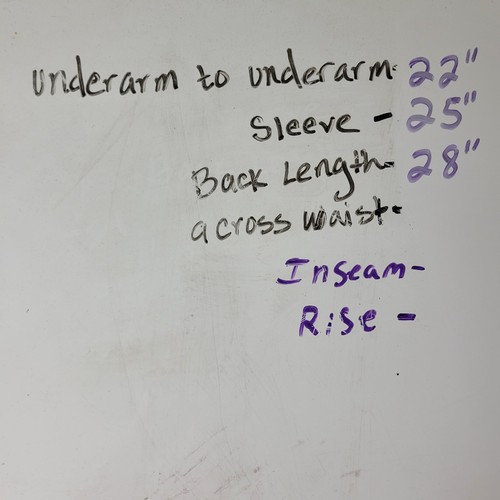 underarm to underarm- 22"
Sleeve - 25"
Back Length- 28"
across waist-
Inseam-
Rise -